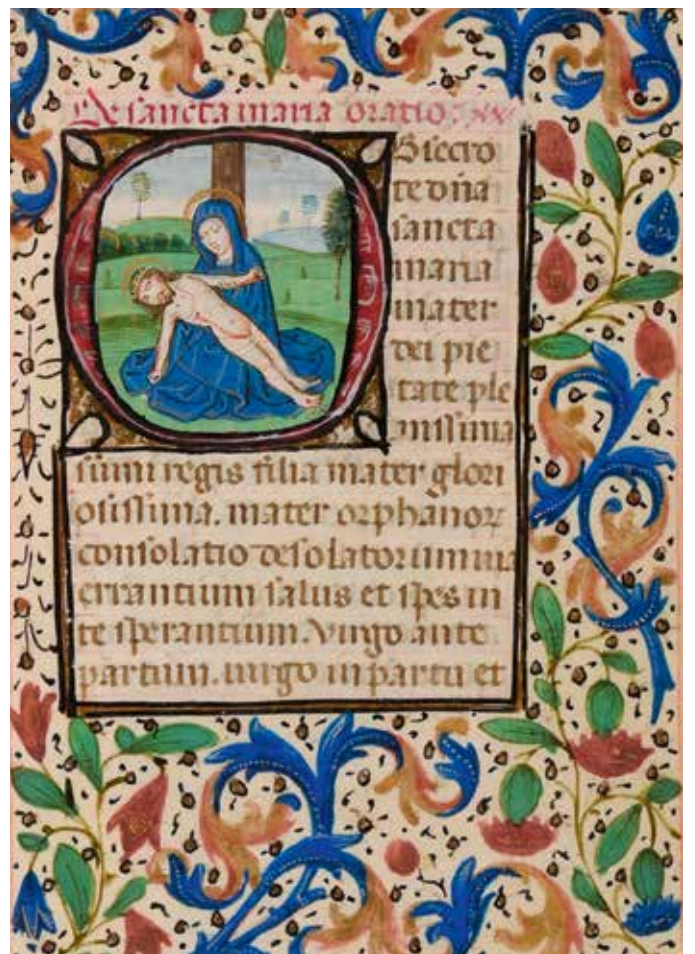 De sancta maria oratio:
OBsecro
te dña
sancta
maria
mater
dei pie
tate ple
nissima
sumi regis filia mater glori
osissima. mater orphanor
consolatio desolatorum uia
errantium salus et spes in
te sperantium. Virgo ante
partum. uirgo in partu et